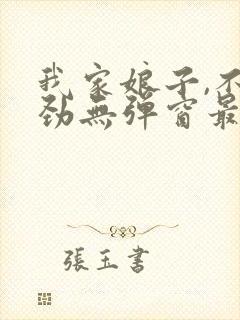 我家娘子,不
劲無弹窗最
張玉書